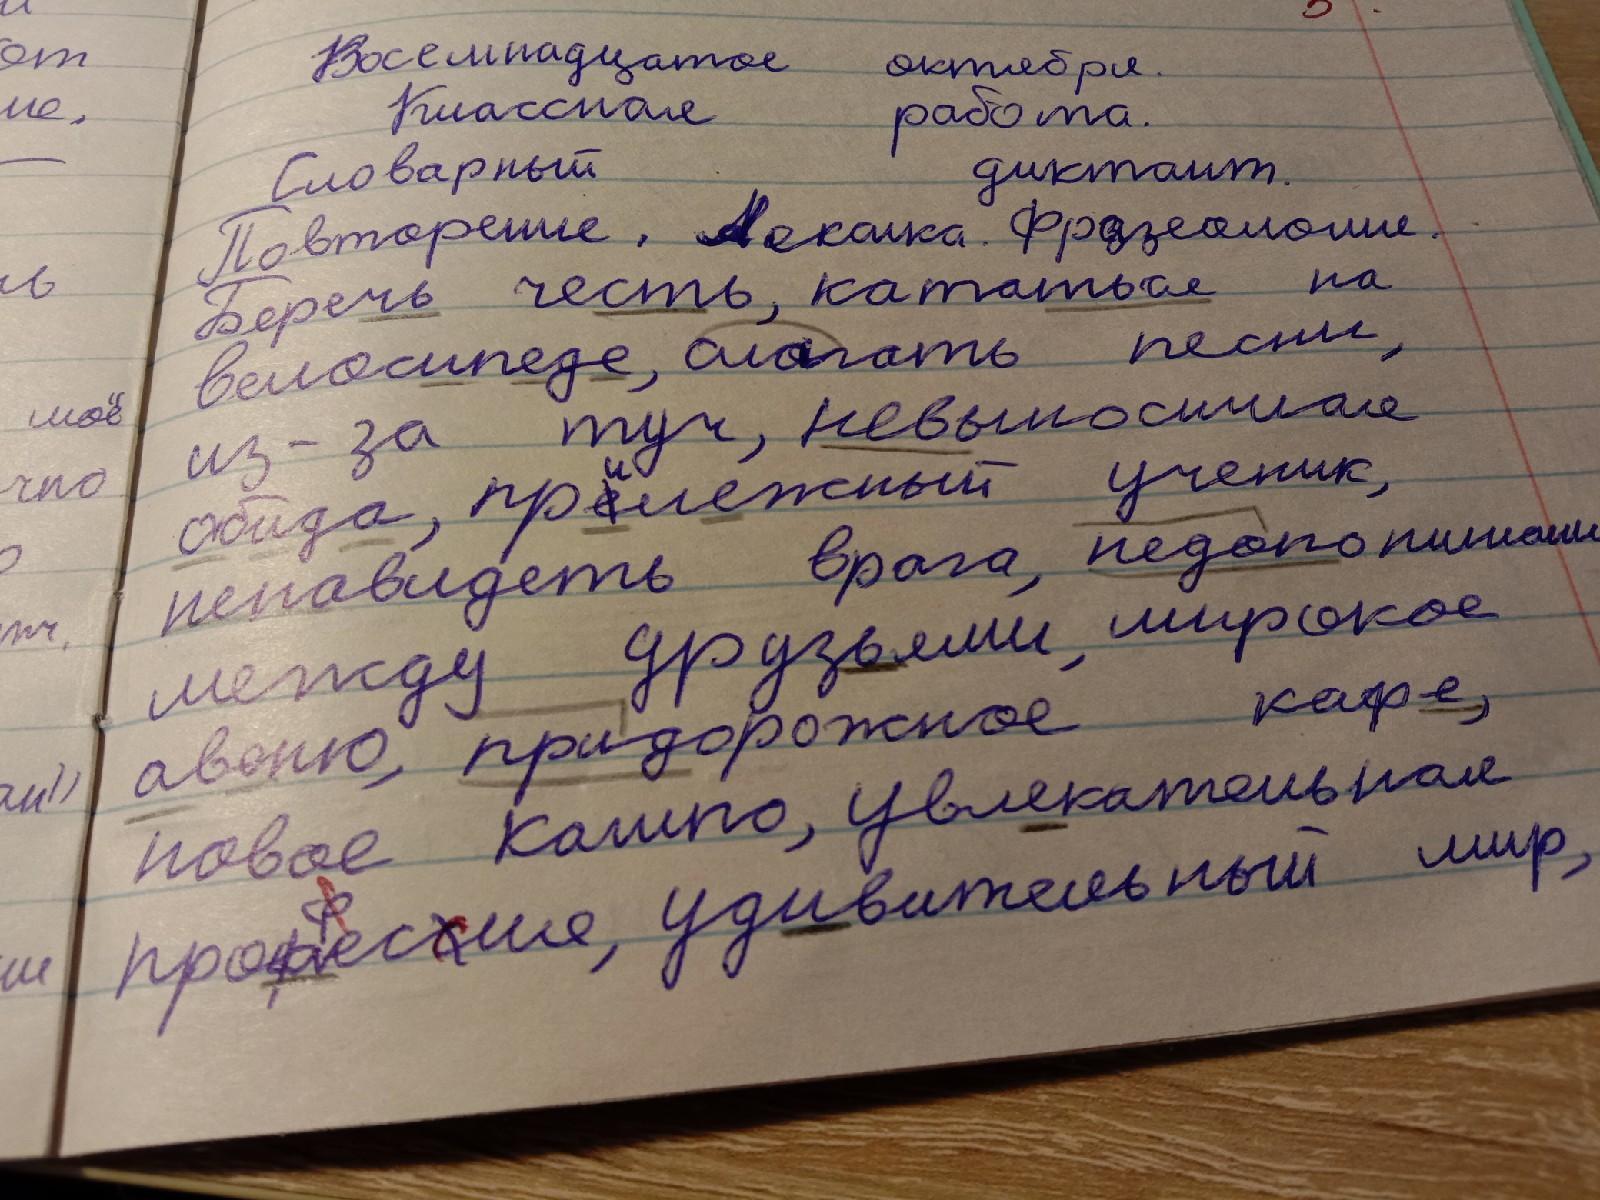 Восемнадцатое октября.
Классная работа.
Словарный диктант.
Повторение. Лексика. Фразеология.
Беречь честь, кататься на
велосипеде, слагать песни,
из-за туч, невыносимая
обида, прилежный ученик,
ненавидеть врага, недопонимани
между друзьями, широкое
авеню, придорожное кафе,
новое кашпо, увлекательная
профессия, удивительный мир,